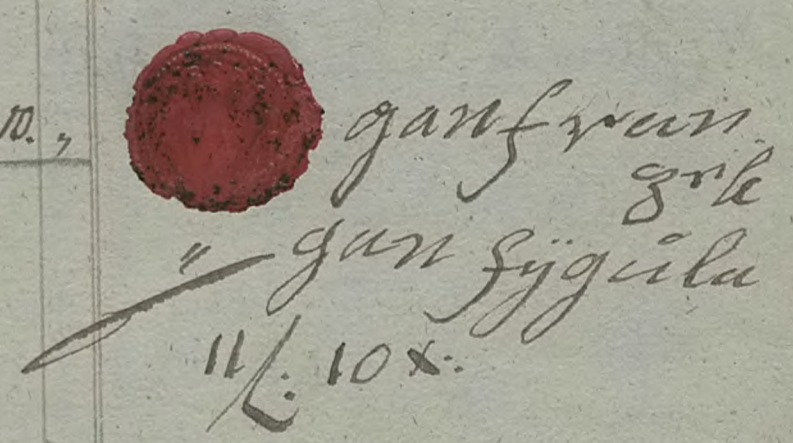 10. „
ganfran
grb
„ gan fÿgůla
11 f. 10 x.